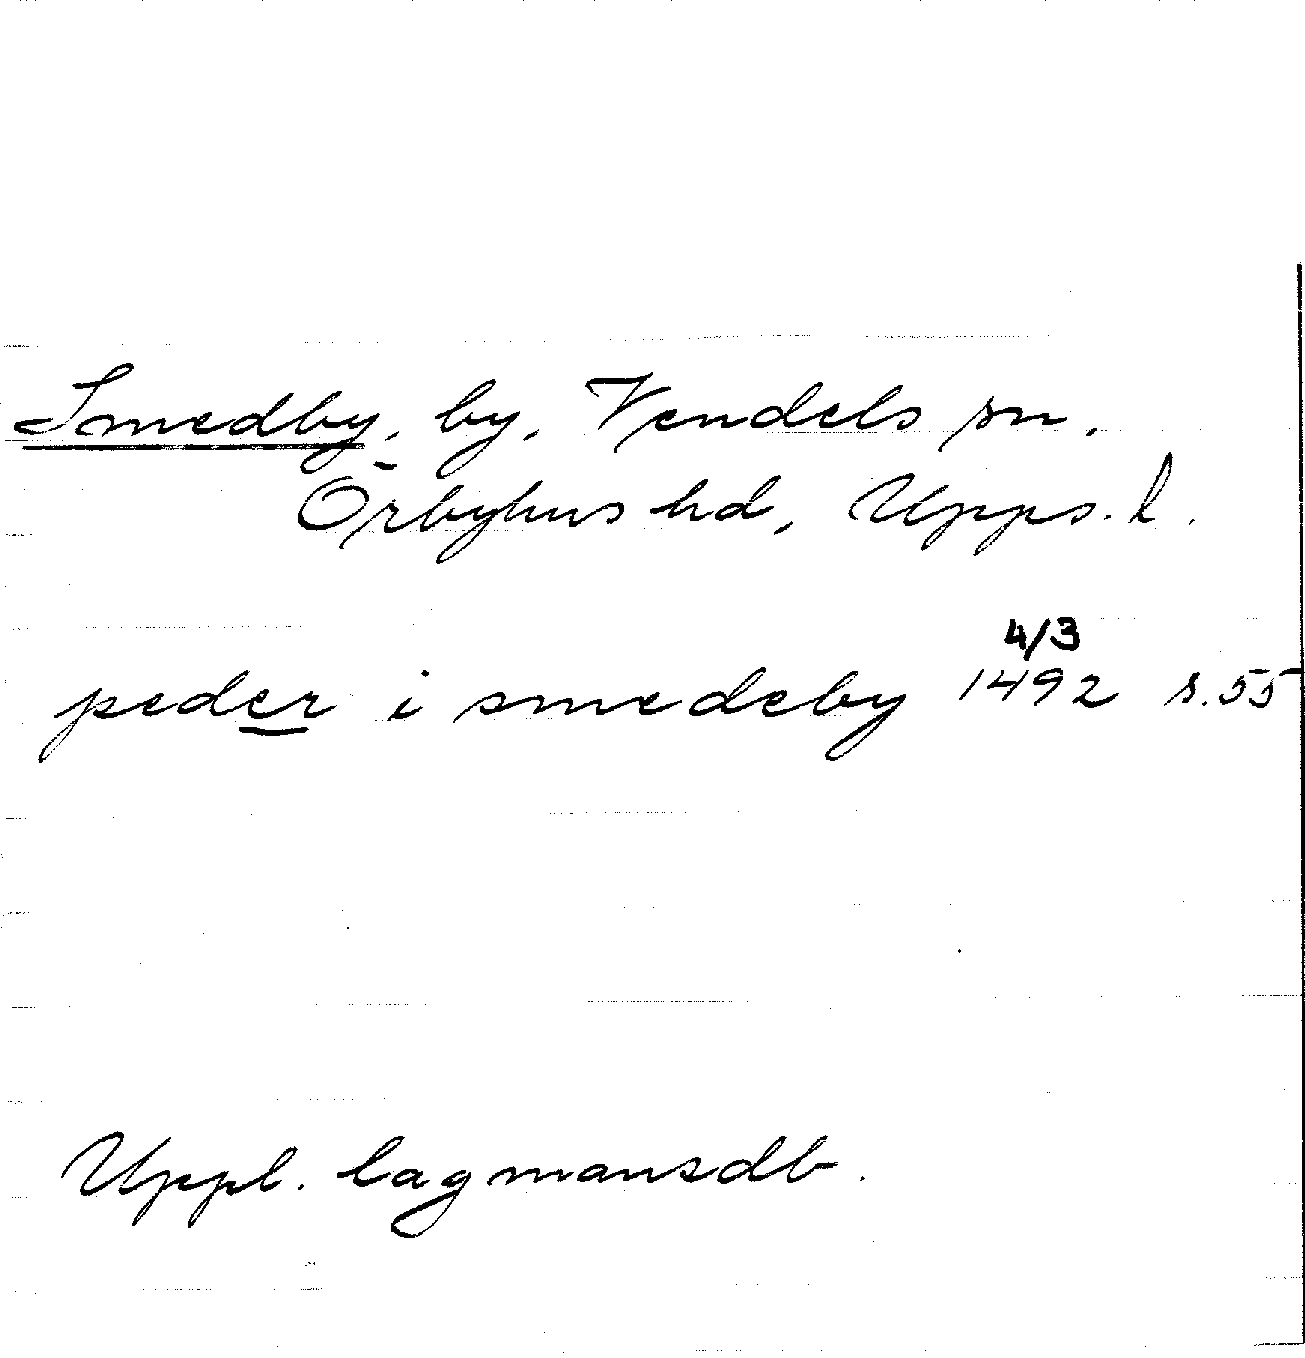 Smedby, by, Vendels sn.
Örbyhus hd, Upps. l.
4/3
peder i smedeby 1492 s. 55
Uppl. lagmansdb.